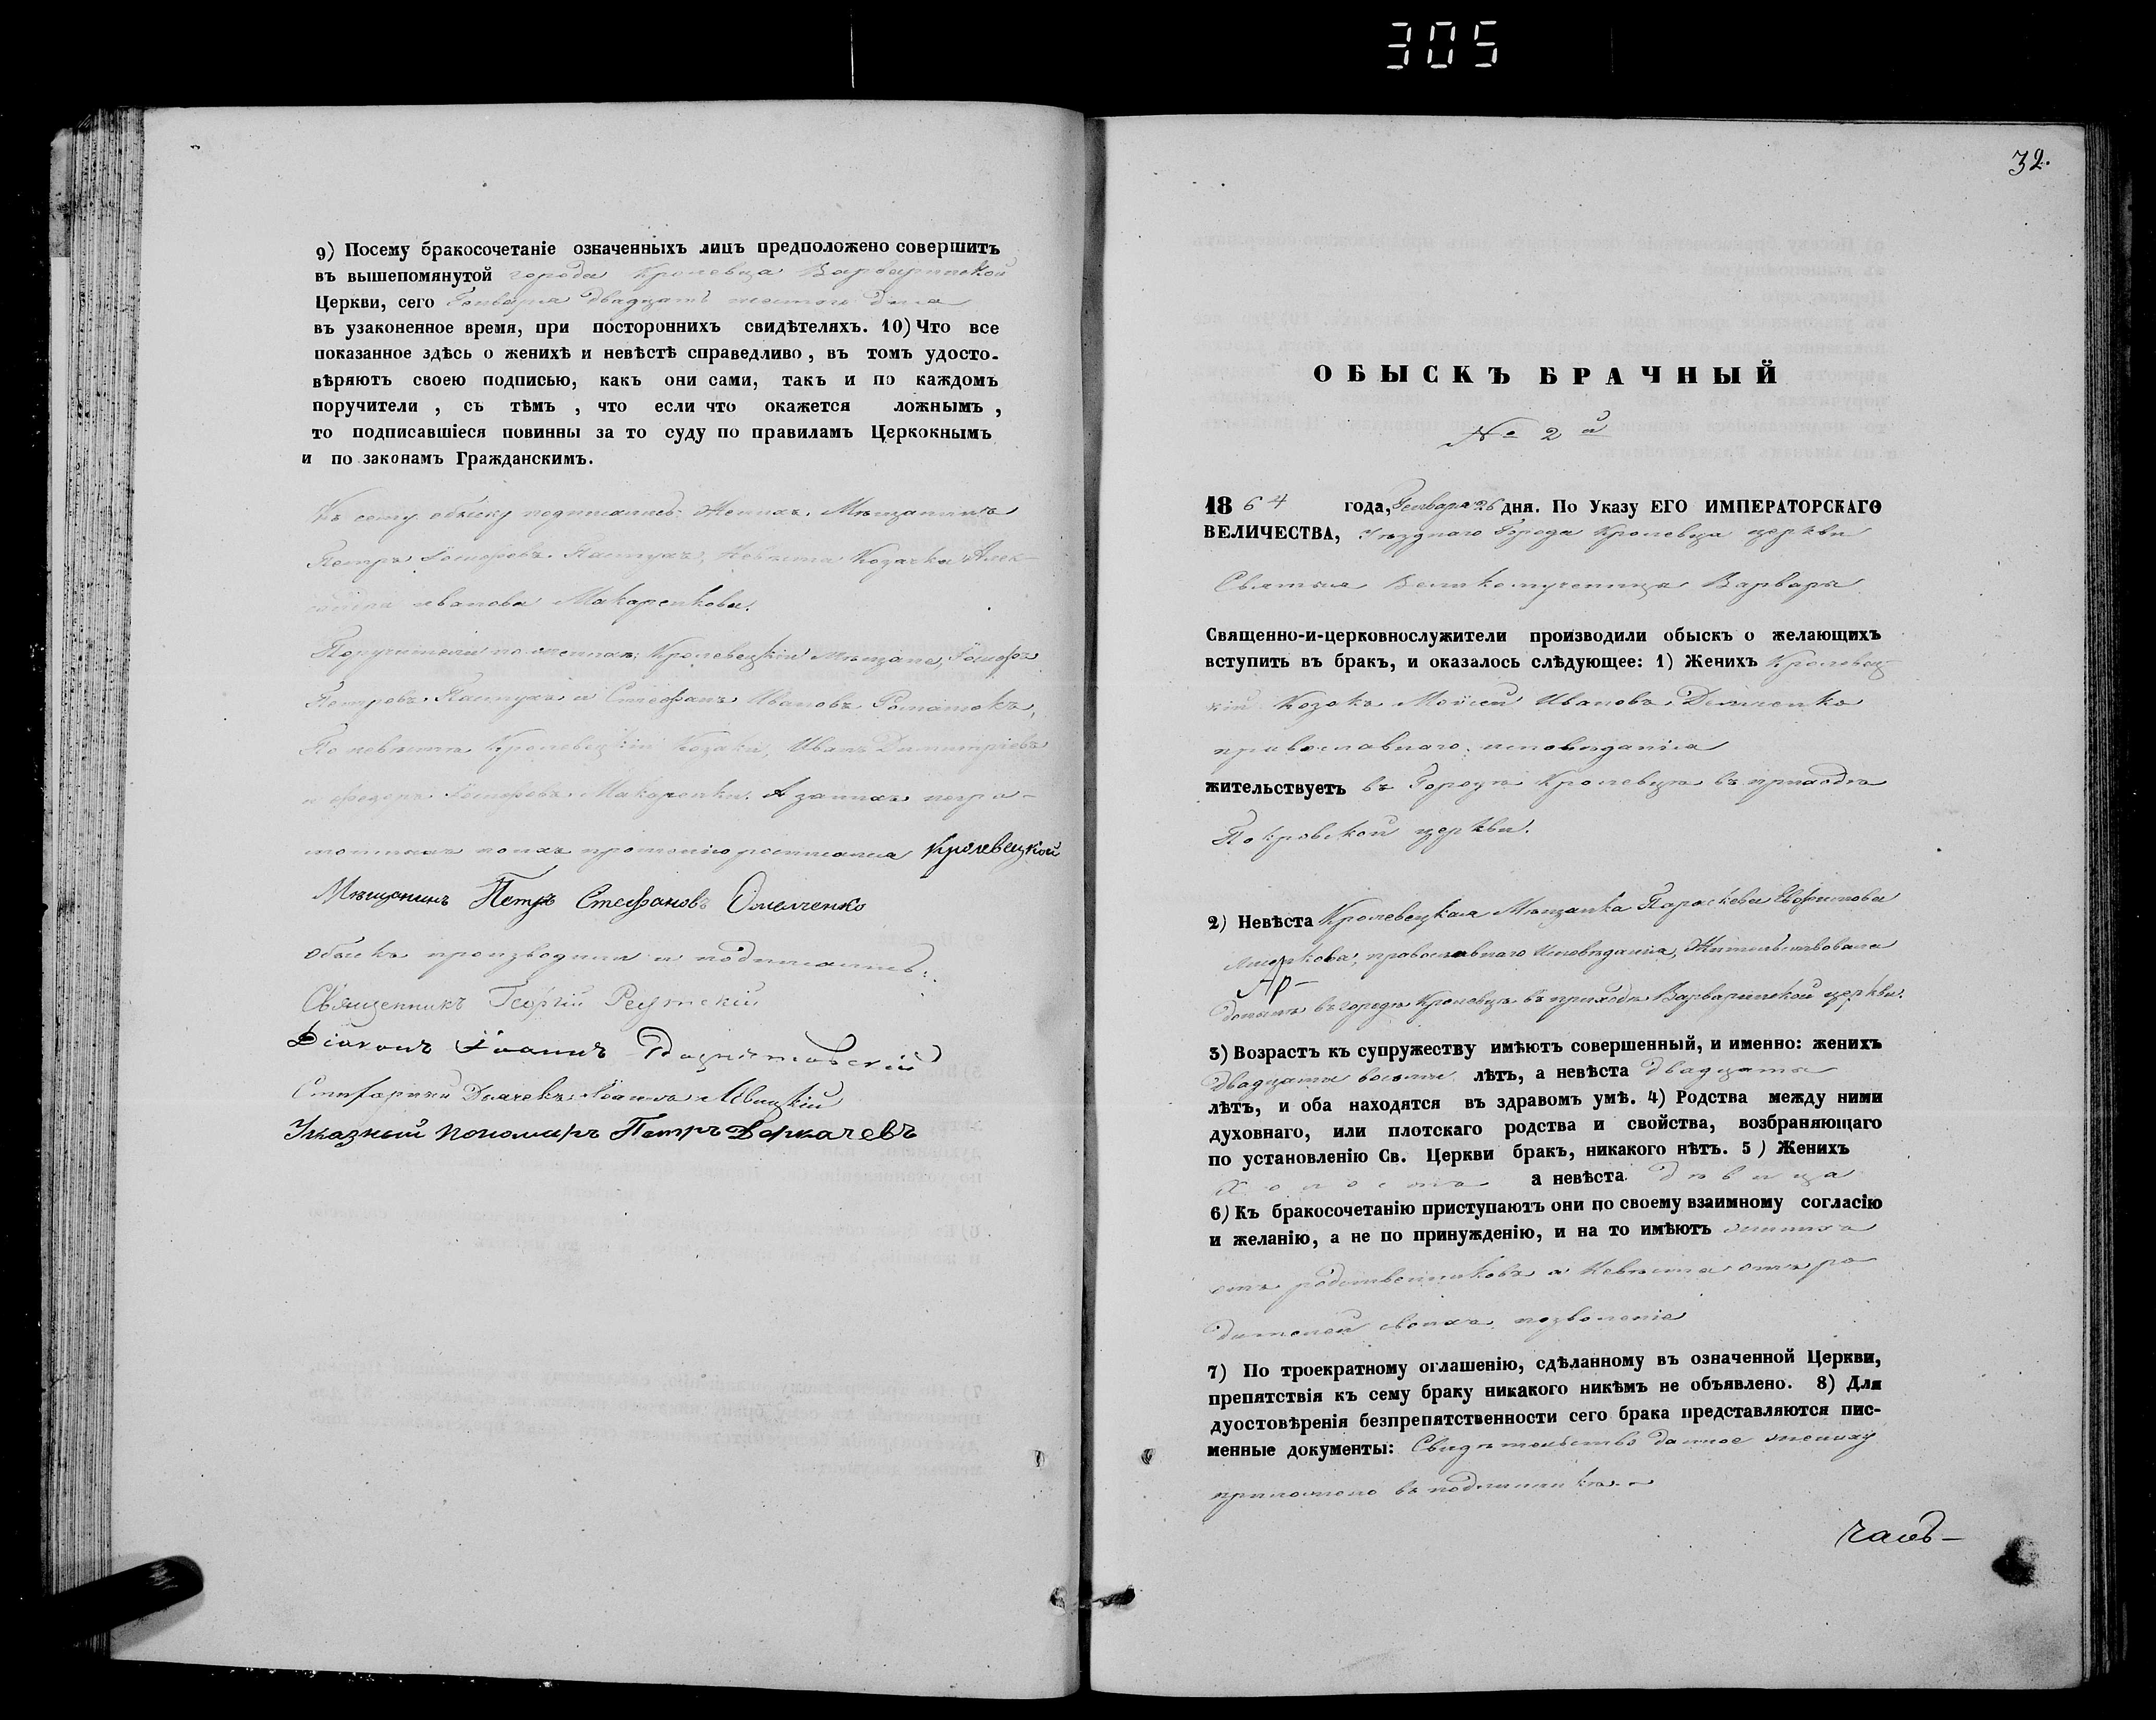 305
9) Посему бракосочетаніе означенныхъ лицъ предположено совершить
въ вышепомянутой города Кролевца Варваринской
Церкви, сего Генваря двадцать шестого дня
въ узаконенное время, при постороннихъ свидѣтеляхъ. 10) Что все
показанное здѣсь о женихѣ и невѣстѣ справедливо, въ томъ удосто-
вѣряютъ своею подписью, какъ они сами, такъ и по каждомъ
поручители, съ тѣмъ, что если что окажется ложнымъ,
то подписавшіеся повинны за то суду по правиламъ Церкокнымъ
и по законамъ Гражданскимъ.
Къ сему обыску подписались: Женихъ, Мѣщанинъ
Петръ Іосифовъ Пастухъ, Невѣста Козачка Алек-
Иванова Макаренкова.
Поручители по женихѣ; Кролевецкіи Мѣщане, Іосифъ
Петровъ Пастухъ и Стефанъ Ивановъ
По невѣстѣ Кролевецкіи Козаки, Иванъ Димитріевъ
и Федоръ Іосифовъ Макаренки. А за нихъ негра-
мотныхъ по ихъ прошенію росписался Кролевецкой
Мѣщанинъ Петръ Стефановъ Омелченко
Обыскъ производили и подписались:
Священникъ Георгій
Діаконъ Іоаннъ
Стихарный Дьячекъ Іоаннъ Левицкій
Указный пономарь Петръ Деркачевъ
32.
ОБЫСКЪ БРАЧНЫЙ
№ 2й
1864 года, Генваря 26 дня. По Указу ЕГО ИМПЕРАТОРСКАГО
ВЕЛИЧЕСТВА, Уѣзднаго Города Кролевца церкви
Святыя Великомученицы Варвары
Священно-и-церковнослужители производили обыскъ о желающихъ
вступить въ бракъ, и оказалось слѣдующее: 1) Женихъ Кролевец-
кій Козакъ Мойсей Ивановъ
православнаго исповѣданія
жительствуетъ въ Городѣ Кролевцѣ въ приходѣ
Покровской церкви.
2) Невѣста Кролевецкая Мѣщанка Параскева Евфимова
православнаго Исповѣданія, Жительствовала
доныне въ городѣ Кролевцѣ въ приходѣ Варваринской церкви.
3) Возрастъ къ супружеству имѣютъ совершенный, и именно: женихъ
двадцати восьми лѣтъ, а невѣста двадцати
лѣтъ, и оба находятся въ здравомъ умѣ. 4) Родства между ними
духовнаго, или плотскаго родства и свойства, возбраняющаго
по установленію Св. Церкви бракъ, никакого нѣтъ. 5) Женихъ
Холостъ а невѣста дѣвица
6) Къ бракосочетанію приступаютъ они по своему взаимному согласію
и желанію, а не по принужденію, и на то имѣютъ женихъ
отъ родственниковъ а Невѣста отъ ро
дителей своихъ позволеніе
7) По троекратному оглашенію, сдѣланному въ означенной Церкви,
препятствія къ сему браку никакого никѣмъ не объявлено. 8) Для
дуостовѣренія безпрепятственности сего брака представляются пис-
менные документы: Свидѣтельство данное жениху
приложено въ подлинникѣ.